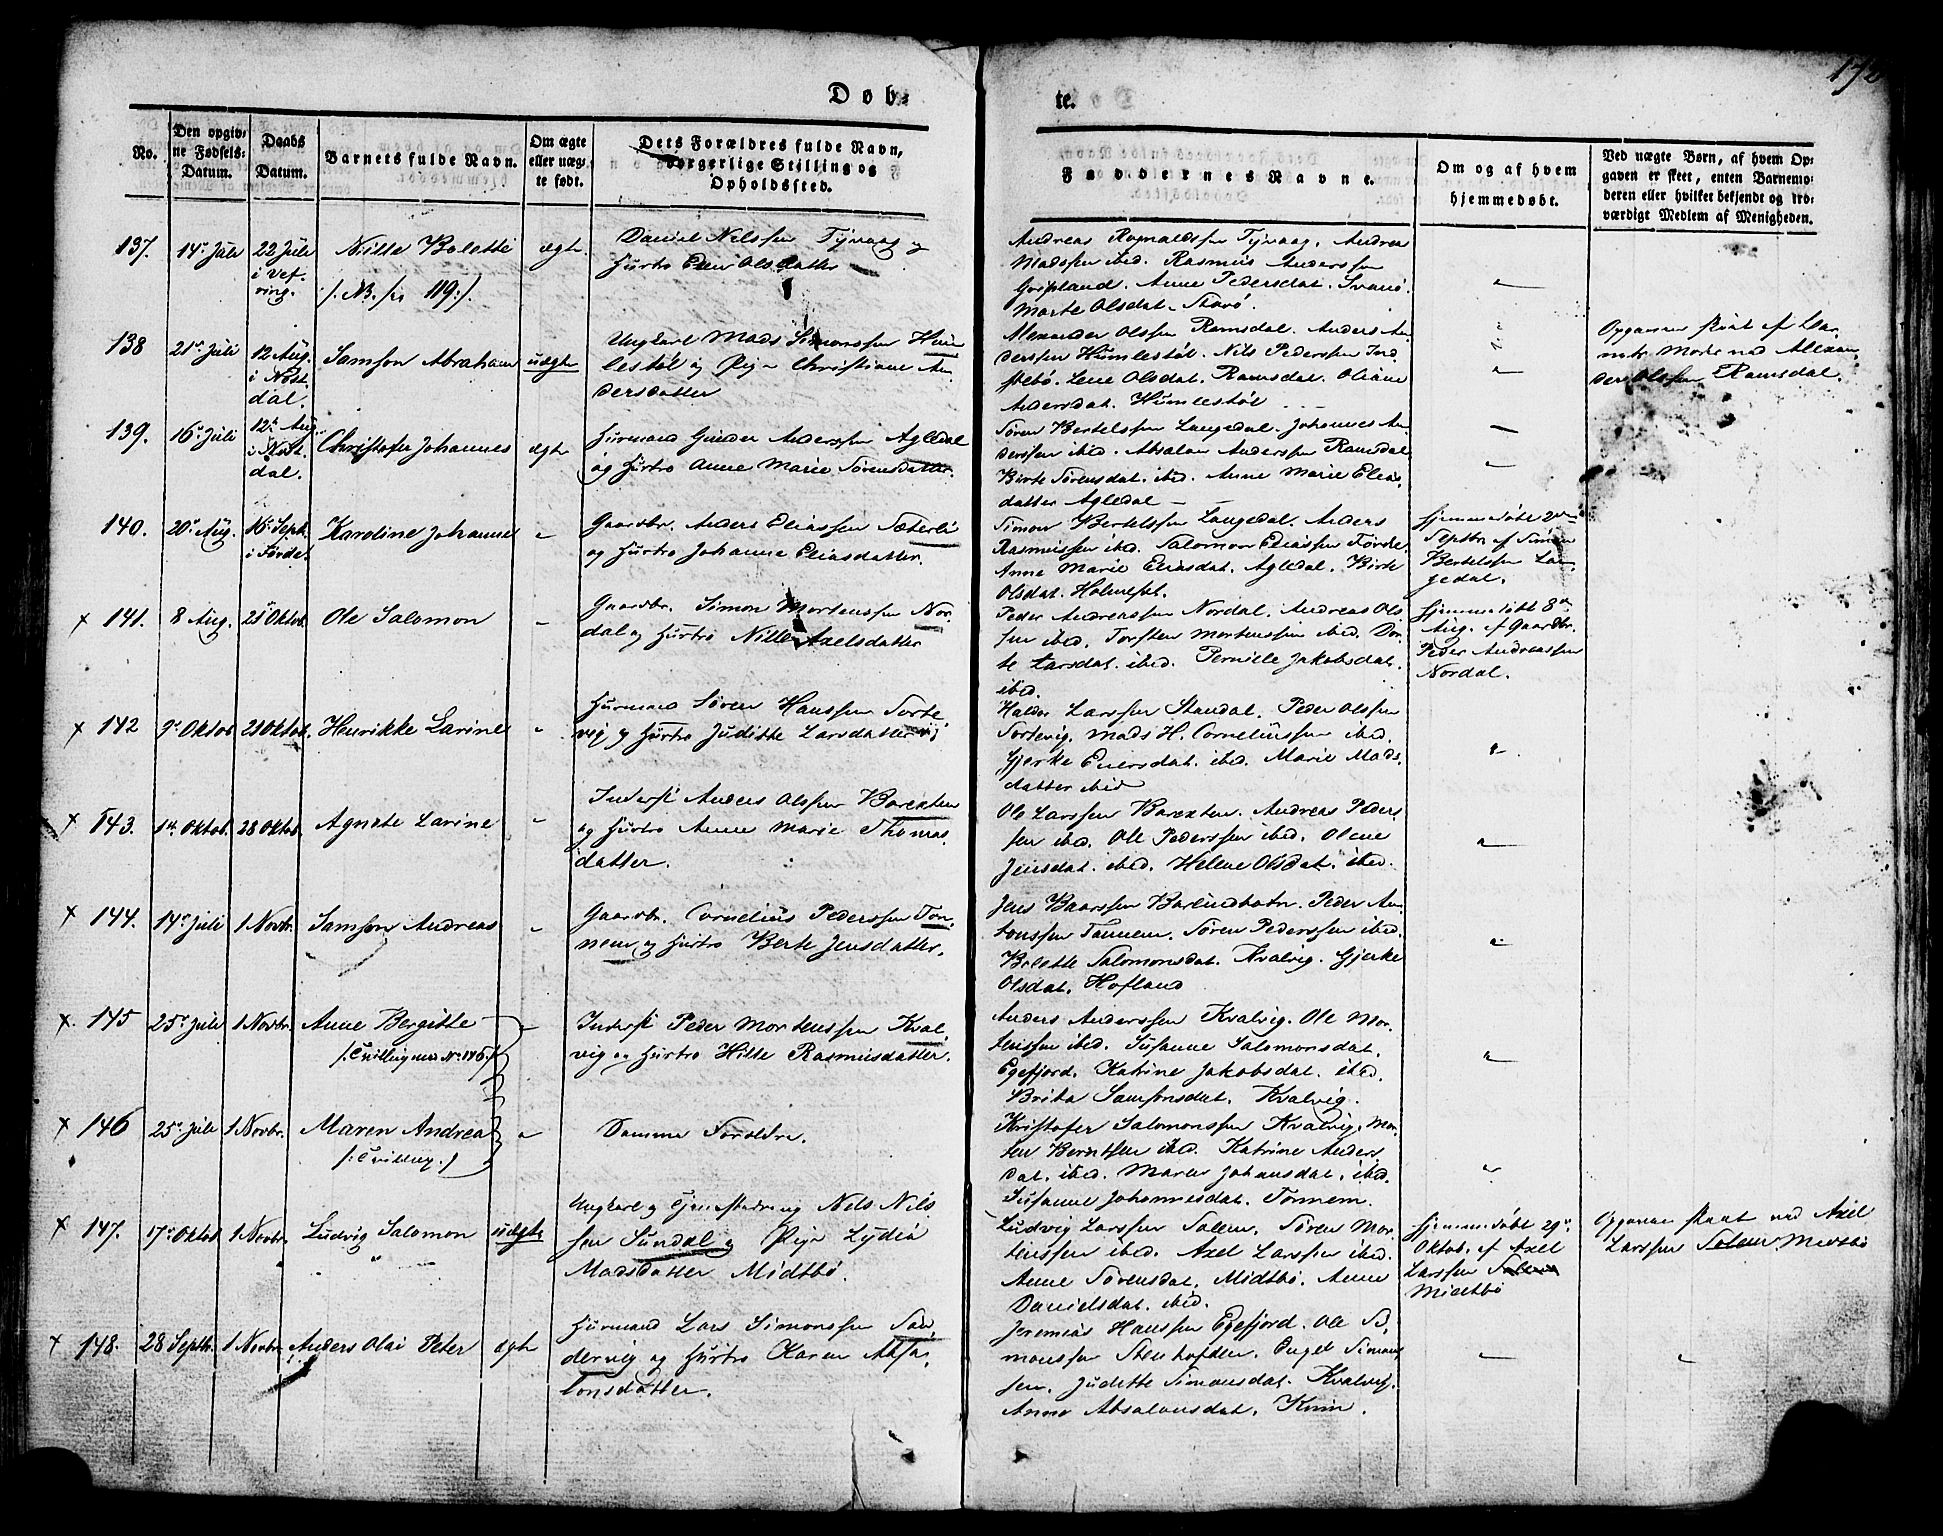 172
Døb-
te.
No.
Den opgiv-
ne Fødsels-
Datum.
Daabs
Datum.
Barnets fulde Navn.
Om ægte
eller uæg-
te født.
Dets Forældres fulde Navn,
borgerlige Stilling og
Opholdssted.
Faddernes Navne.
Om og af hvem
hjemmedøbt.
Ved uægte Børn, af hvem Op-
gaven er skeet, enten Barnemo-
deren eller hvilket bekjendt og tro-
værdigt Medlem af Menigheden.
137.
14de Juli
22 Juli
i Vef-
ring.
Nille Bolette
/: NB. fra 119:/.
ægte
Daniel Nilssen Tyvaag og
Hustro Elen Olsdatter
Andreas Rognaldssen Tyvaag. Andrea
Madssen ibid. Rasmus Anderssen
Gripland. Anne Pedersdat. Svanø.
Marte Olsdat. Stavø.
138
21de Juli
12 Aug.
i Nøst-
dal.
Samson Abraham
uægte
Ungkarl Mads Simonssen Hum-
lestøl og Pige Christiane An-
dersdatter
Alexander Olssen Ramsdal. Anders An-
derssen Humlestøl. Nils Pederssen Ind-
stebø. Lene Olsdat. Ramsdal. Oliane
Andersdat. Humlestøl
Opgaven skeet af Bar-
nets Moder ved Alexan-
der Olssen Ramsdal.
139.
16de Juli
12te Aug.
i Nøst-
dal.
Christofer Johannes
ægte
Husmand Gunder Anderssen Agledal
og Hustro Anne Marie Sørensdatter.
Søren Bertelssen Langedal. Johannes An-
derssen ibid. Absalon Anderssen Ramsdal
Birte Sørensdat. ibid. Anne Marie Elias-
datter Agledal
140.
20de Aug.
16de Septb.
i Førde.
Karoline Johanne
Gaardbr. Anders Eliassen Sæterli
og Hustro Johanne Eliasdatter.
Simon Bertelssen Langedal. Anders
Rasmussen ibid. Salomon Eliassen Førde.
Anne Marie Eliasdat. Agledal. Birte
Olsdat. Holmeset.
Hjemmedøbt 2den
Septbr. af Simon
Bertelssen Lan-
gedal.
x 141.
8 Aug.
21de Oktob.
Ole Salomon
Gaardbr. Simon Mortenssen Nor-
dal og Hustro Nille Axelsdatter
Peder Andreassen Nordal. Andreas Ols-
sen ibid. Torsten Mortenssen ibid. Dor-
te Larsdat. ibid. Pernille Jakobsdat.
ibid.
Hjemmedøbt 8de
Aug. af Gaardbr.
Peder Andreassen
Nordal.
x 142
9de Oktob.
21 Oktob.
Henrikke Larine
Husmand Søren Hanssen Torte-
vig og Hustro Juditte Larsdatter
Halder Larssen Standal. Peder Olssen
Tortevig. Mads H. Corneliussen ibid.
Gjerke Eliersdat. ibid. Marie Mads-
datter ibid
x 143.
1ste Oktob.
28 Oktob.
Agnete Larine
Inderst Anders Olssen Barexten
og Hustro Anne Marie Thomas-
datter.
Ole Larssen Barexten. Andreas Peders-
sen ibid. Ole Pederssen ibid. Olene
Jensdat. ibid. Helene Olsdat. ibid.
x 144.
14de Juli
1 Novbr.
Samson Andreas
Gaardbr. Cornelius Pederssen Ton-
nem og Hustro Berte Jensdatter.
Jens Baarssen Barlindbotn. Peder An-
tonssen Tonnem. Søren Pederssen ibid.
Bolette Salomonsdat. Kvalvig. Gjerke
Olsdat. Hofland
x. 145
25de Juli
1 Novbr.
Anne Bergitte
/: Tvilling med No 146:/
Inderst Peder Mortenssen Kval-
vig og Hustro Hille Rasmusdatter.
Anders Anderssen Kvalvig. Ole Mor-
tenssen ibid. Susanne Salomonsdat.
Egefjord. Katrine Jakobsdat. ibid.
Brita Samsonsdat. Kvalvig.
x 146
25de Juli
1 Novbr.
Maren Andrea
/: Tvilling :/
Samme Forældre.
Kristofer Salomonssen Kvalvig. Mor-
ten Berntsen ibid. Katrine Anders-
dat. ibid. Maren Johansdat. ibid.
Susanne Johannesdat. Tonnem.
x 147.
17de Oktob.
1 Novbr.
Ludvig Salomon
uægte
Ungkarl og Tjenestedreng Nels Nils-
sen Sundal og Pige Lydia
Madsdatter Midtbø.
Ludvig Larssen Solem. Søren Mor-
tenssen ibid. Axel Larssen ibid.
Anne Sørensdat. Midtbø. Anne
Danielsdat. ibid.
Hjemmedøbt 29de
Oktob. af Axel
Larssen Solem
Midtbø
Opgaven skeet ved Axel
Larssen Solem Midtbø
x 148.
28 Septb.
1 Novbr.
Anders Olai Peter
ægte
Husmand Lars Simonssen San-
dervig og Hustro Karen Absa-
lonsdatter.
Jeremias Hanssen Egefjord. Ole Si-
monssen Stenhofden. Engel Simons-
sen. Juditte Simonsdat. Kvalvig.
Anne Absalonsdat. Knin.